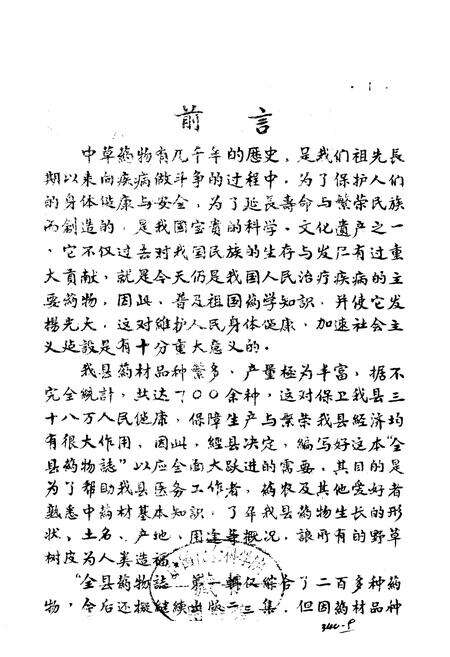 · 1 ·
前 言
中草葯物有几千年的歷史，是我们祖先長
期以来向疾病做斗争的过程中，为了保护人们
的身体健康与安全，为了延長壽命与繁荣民族
而創造的，是我国宝贵的科学。文化遺产之一
，它不仅过去对我国民族的生存与发展有过重
大贡献，就是今天仍是我国人民治疗疾病的主
要葯物，因此，普及祖国葯学知識，并使它发
揚光大，这对維护人民身体健康，加速社会主
义建設是有十分重大意义的。
我县葯材品种繁多，产量極为丰富，据不
完全統計，共达700余种，这对保卫我县三
十八万人民健康，保障生产与繁荣我县經济均
有很大作用，因此，經县决定，编写好这本“全
县葯物誌”以应全面大跃进的需要，其目的是
为了帮助我县医务工作者，葯农及其他爱好者
熟悉中葯材基本知识，了解我县葯物生長的形
状、土名、产地、用途等概况，讓所有的野草
树皮为人类造福。
“全县葯物誌”第一輯仅綜合了二百多种葯
物，今后还擬継续出版二三集，但因葯材品种